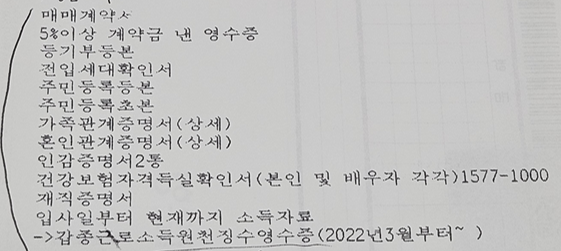 매매계약서
5%이상 계약금 낸 영수증
등기부등본
전입세대확인서
주민등록등본
주민등록초본
가족관계증명서(상세)
혼인관계증명서(상세)
인감증명서2통
건강보험자격득실확인서(본인 및 배우자 각각)1577-1000
재직증명서
입사일부터 현재까지 소득자료
->갑종근로소득원천징수영수증(2022년3월부터~ )